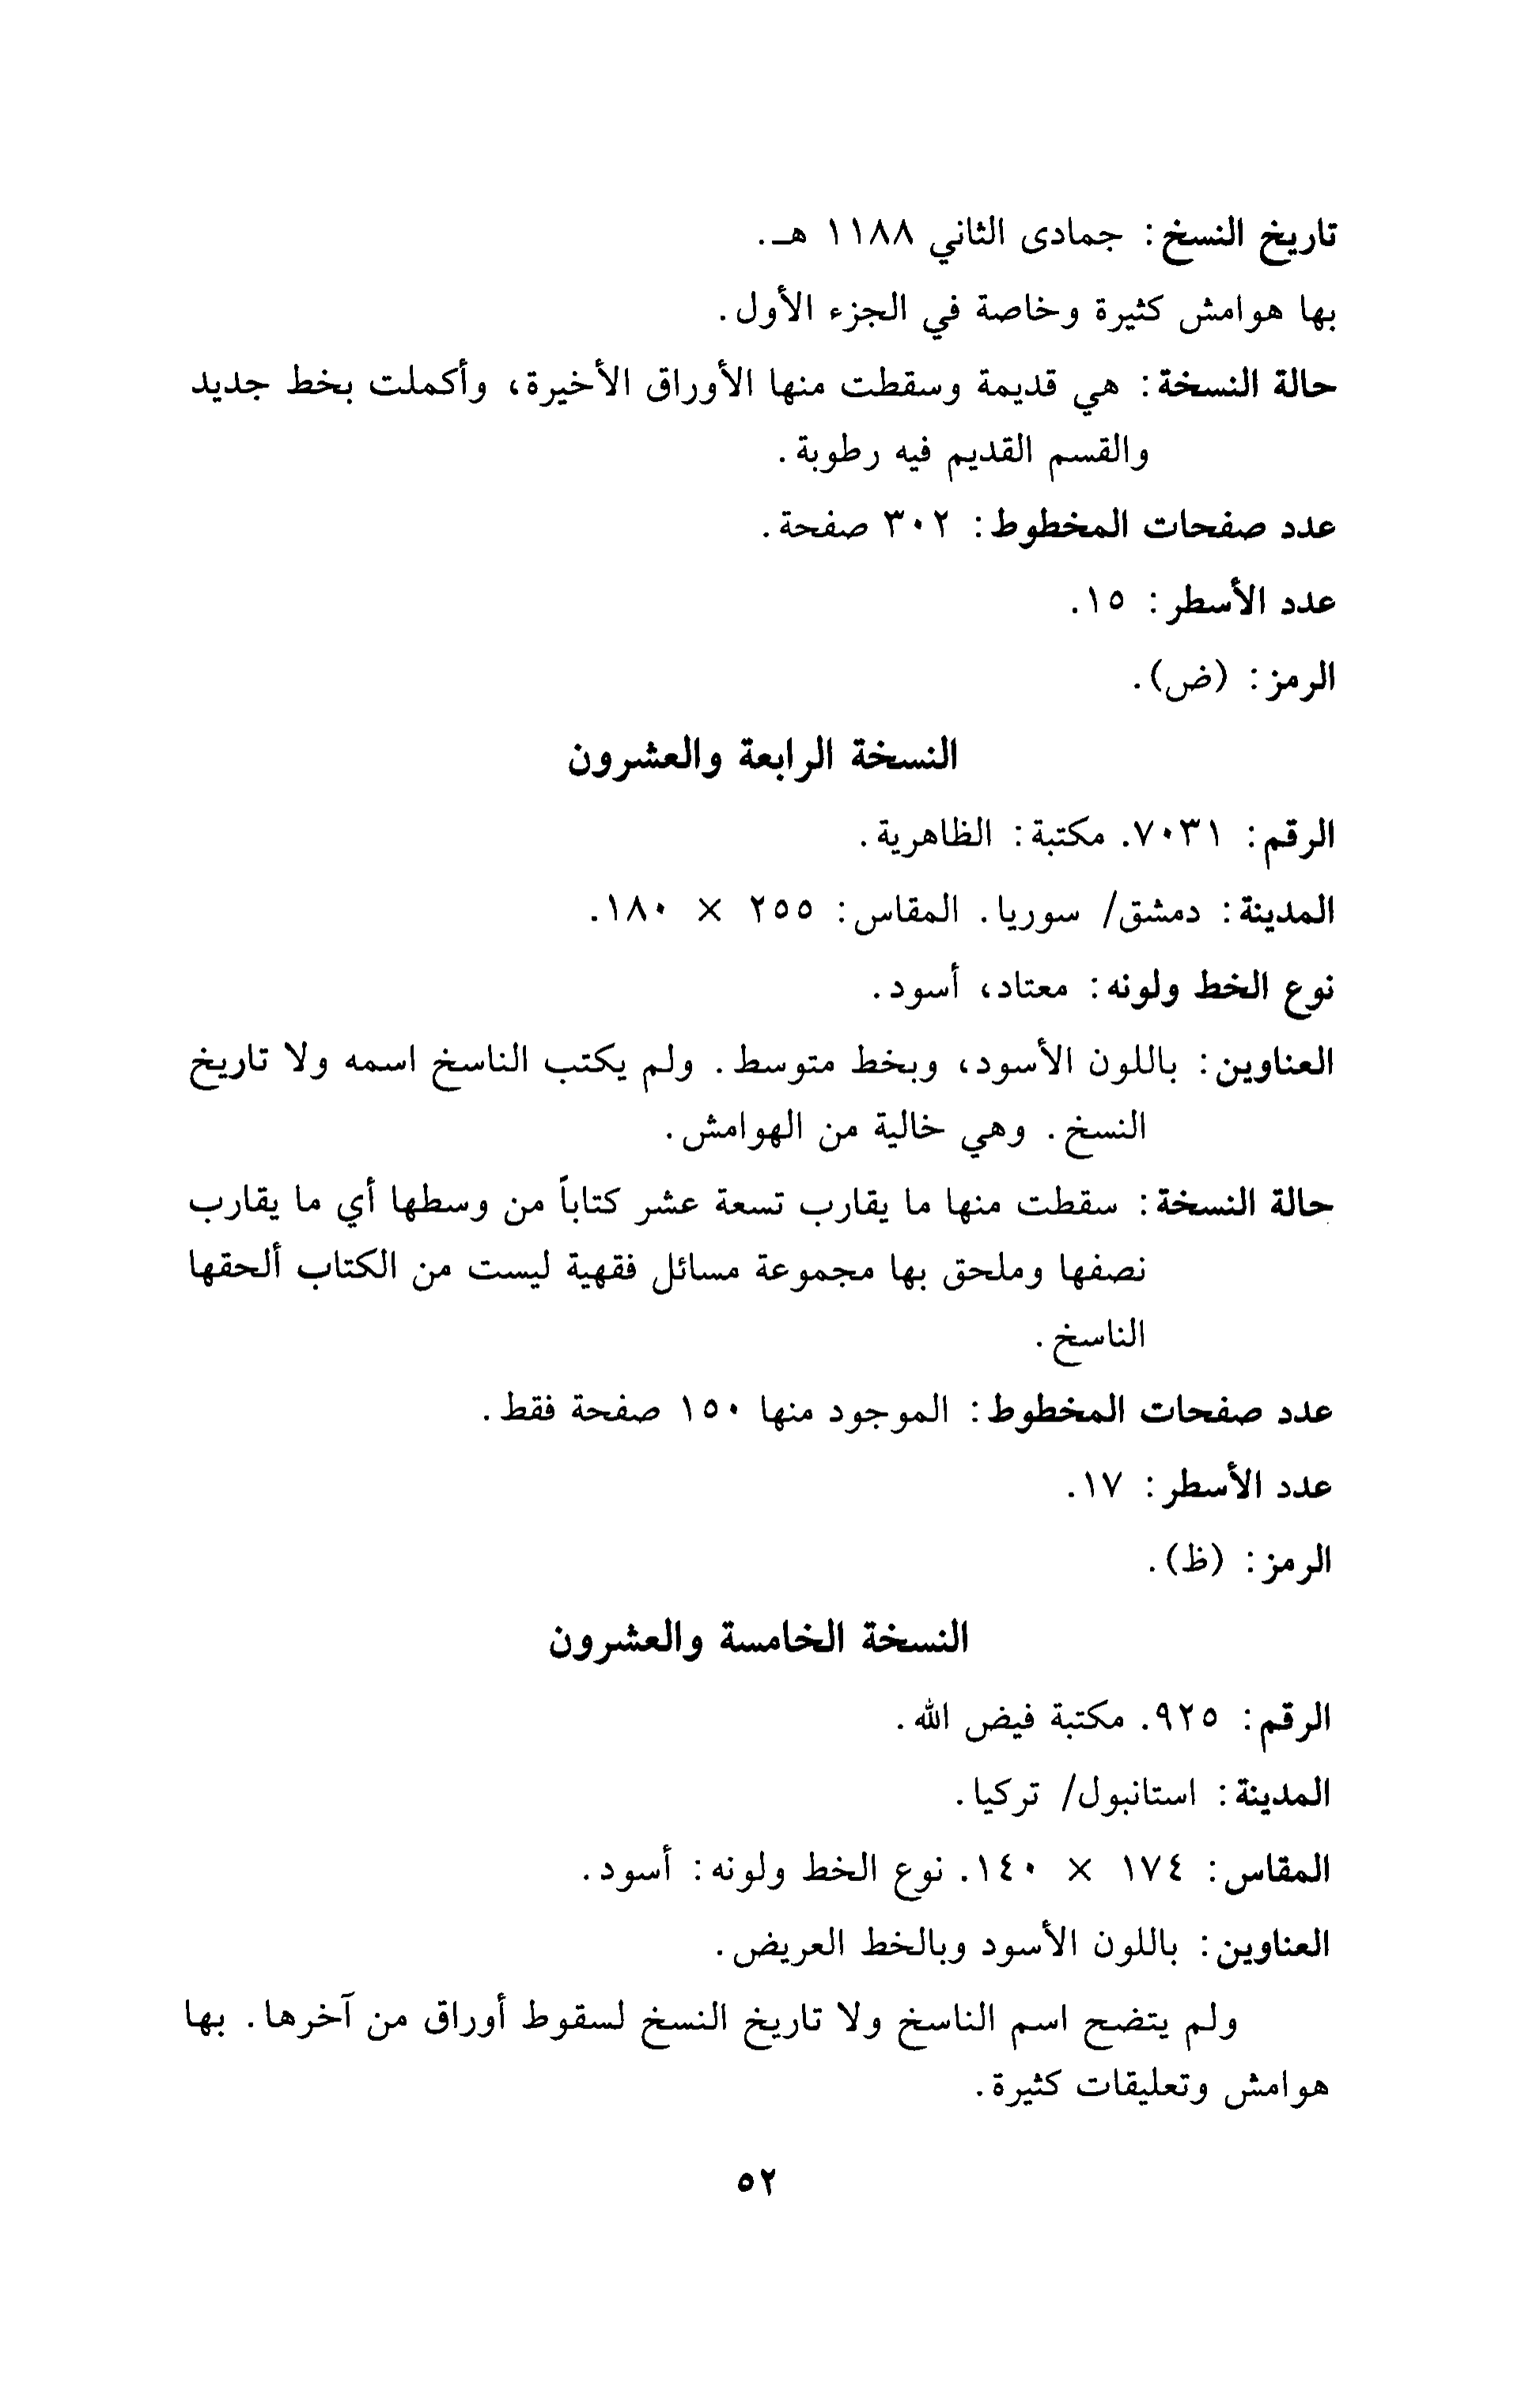 تاريخ النسخ: جمادى الثاني ١١٨٨ هـ.
بها هوامش كثيرة وخاصة في الجزء الأول.
حالة النسخة: هي قديمة وسقطت منها الأوراق الأخيرة، وأكملت بخط جديد
والقسم القديم فيه رطوبة.
عدد صفحات المخطوط: ٣٠٢ صفحة.
عدد الأسطر: ١٥.
الرمز: (ض).
النسخة الرابعة والعشرون
الرقم: ٧٠٣١. مكتبة: الظاهرية.
المدينة: دمشق/ سوريا. المقاس: ٢٥٥ × ١٨٠.
نوع الخط ولونه: معتاد، أسود.
العناوين: باللون الأسود، وبخط متوسط. ولم يكتب الناسخ اسمه ولا تاريخ
النسخ. وهي خالية من الهوامش.
حالة النسخة: سقطت منها ما يقارب تسعة عشر كتاباً من وسطها أي ما يقارب
نصفها وملحق بها مجموعة مسائل فقهية ليست من الكتاب ألحقها
الناسخ.
عدد صفحات المخطوط: الموجود منها ١٥٠ صفحة فقط.
عدد الأسطر: ١٧.
الرمز: (ظ).
النسخة الخامسة والعشرون
الرقم: ٩٢٥. مكتبة فيض الله.
المدينة: استانبول/ تركيا.
المقاس: ١٧٤ × ١٤٠. نوع الخط ولونه: أسود.
العناوين: باللون الأسود وبالخط العريض.
ولم يتضح اسم الناسخ ولا تاريخ النسخ لسقوط أوراق من آخرها. بها
هوامش وتعليقات كثيرة.
٥٢